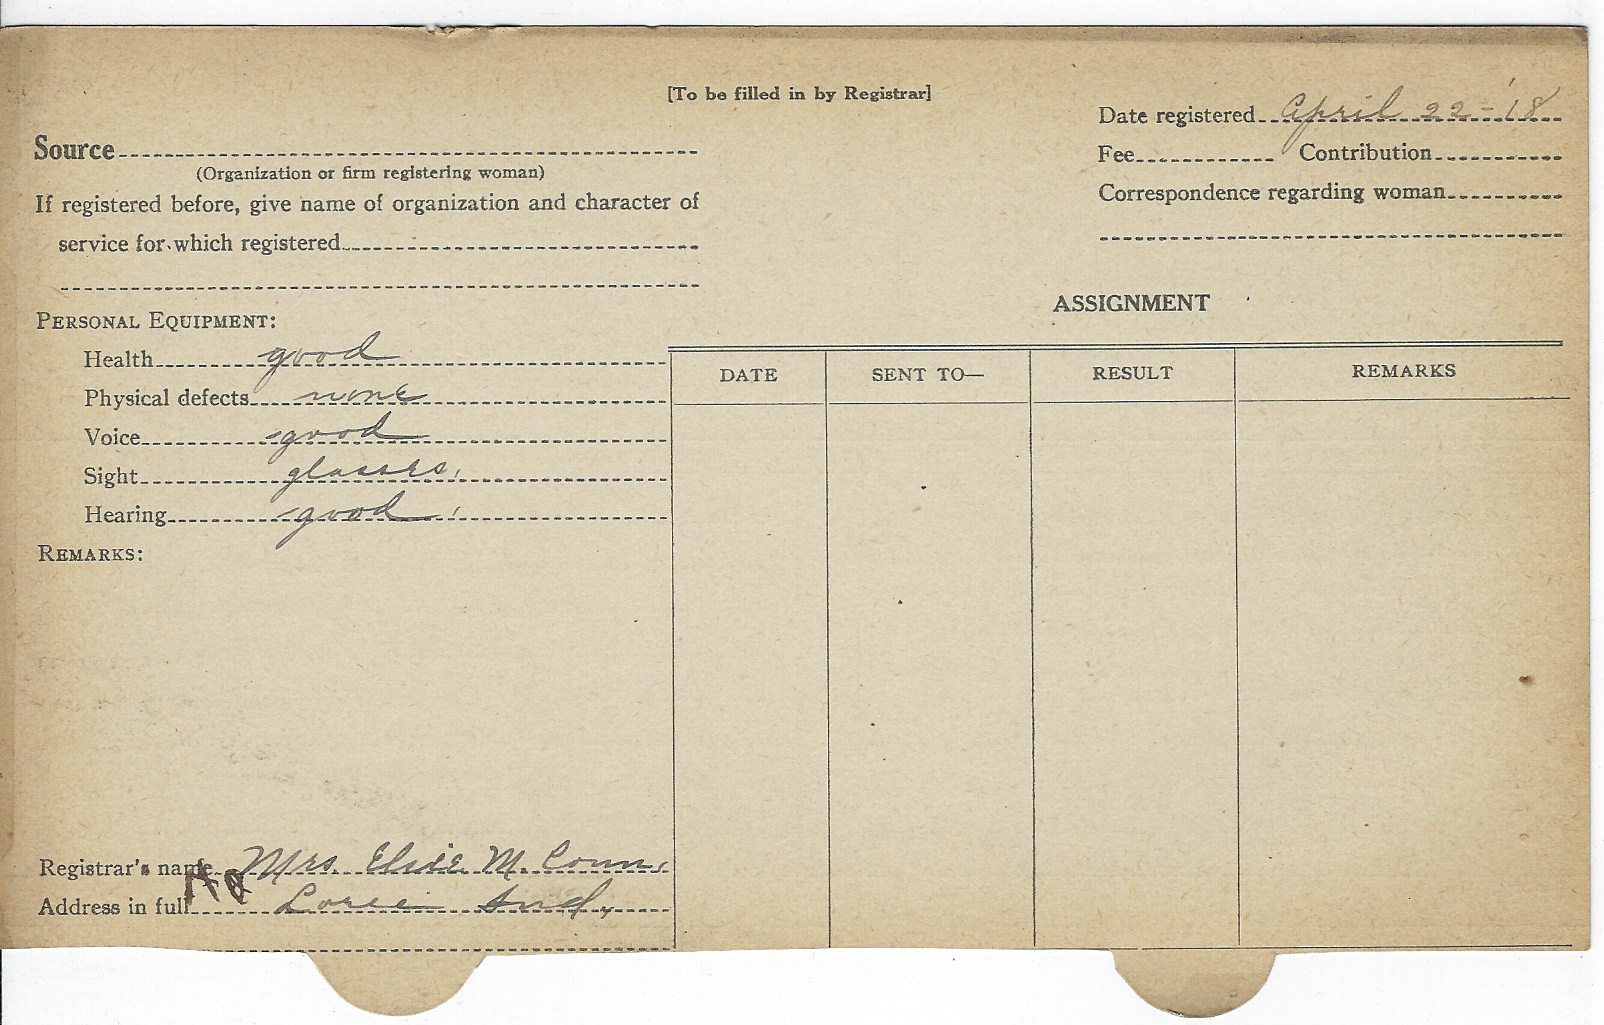 [To be filled in by Registrar]
Date registered April 22-'18
Source
Fee Contribution
(Organization or firm registering woman)
If registered before, give name of organization and character of
Correspondence regarding woman
service for which registered
ASSIGNMENT
PERSONAL EQUIPMENT:
Health good
Physical defects none
Voice good
Sight glasses,
Hearing good
REMARKS:
DATE SENT TO— RESULT REMARKS
Registrar's name Mrs. Elsie M. Conn,
Address in full Loree Ind,